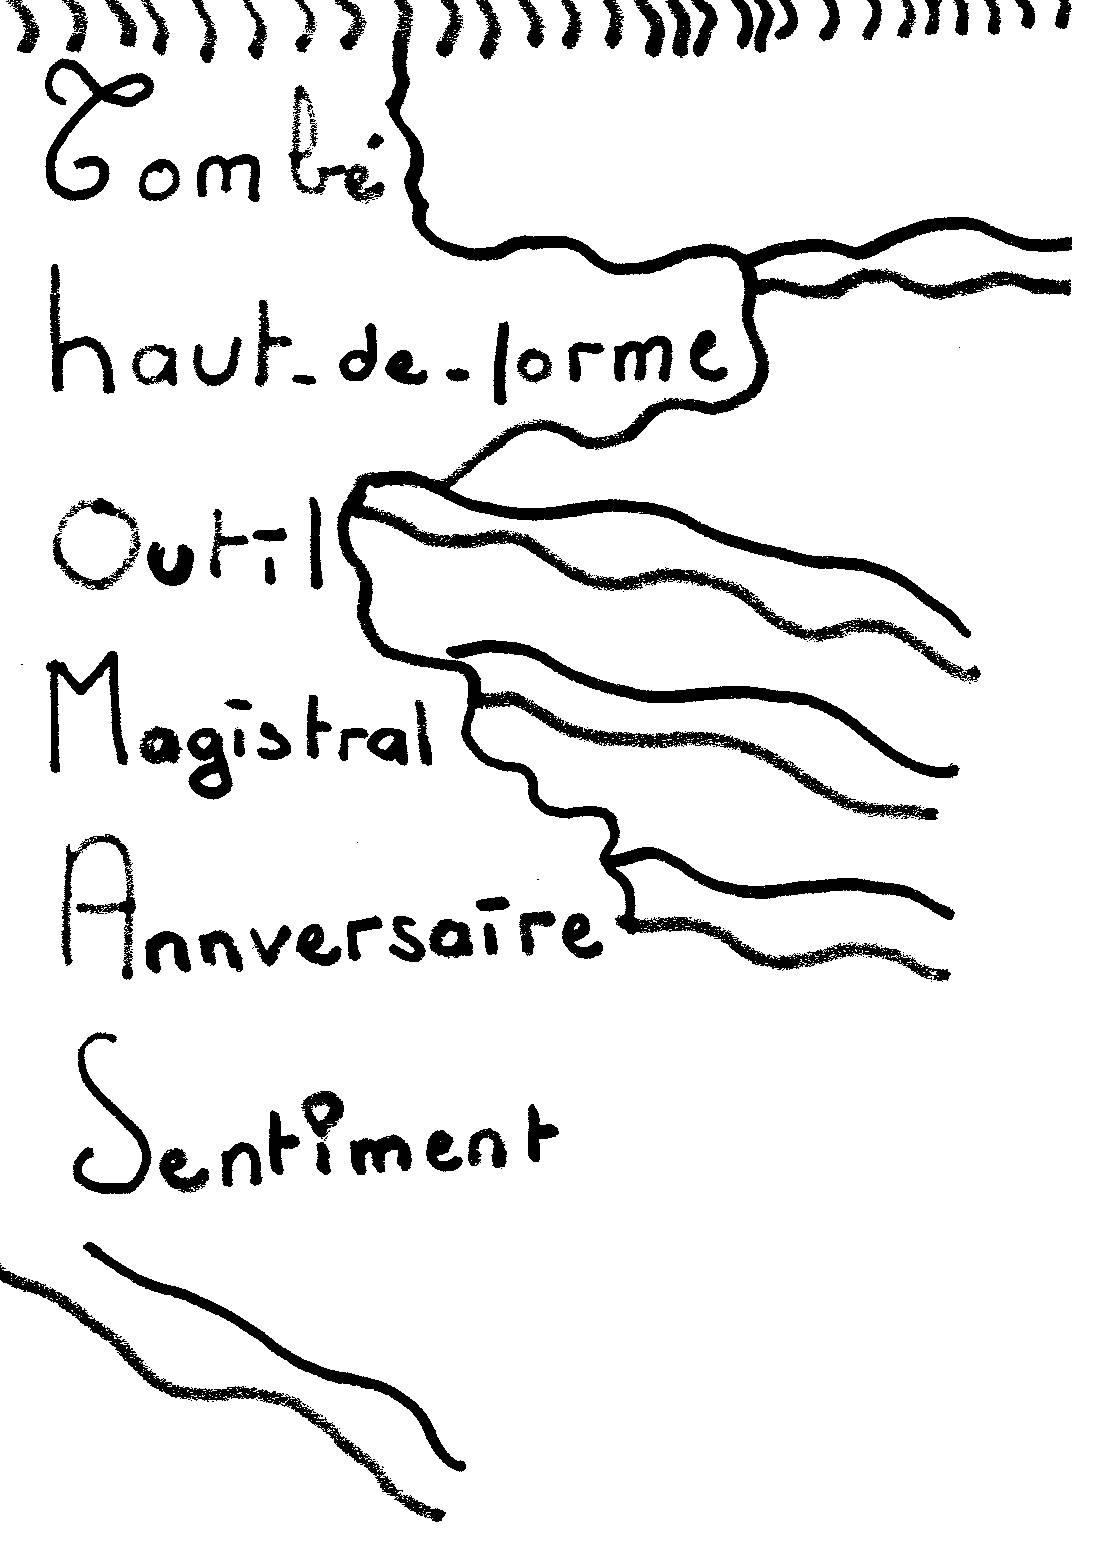 Tombé
haut-de-forme
Outil
Magistral
Annversaire
Sentiment